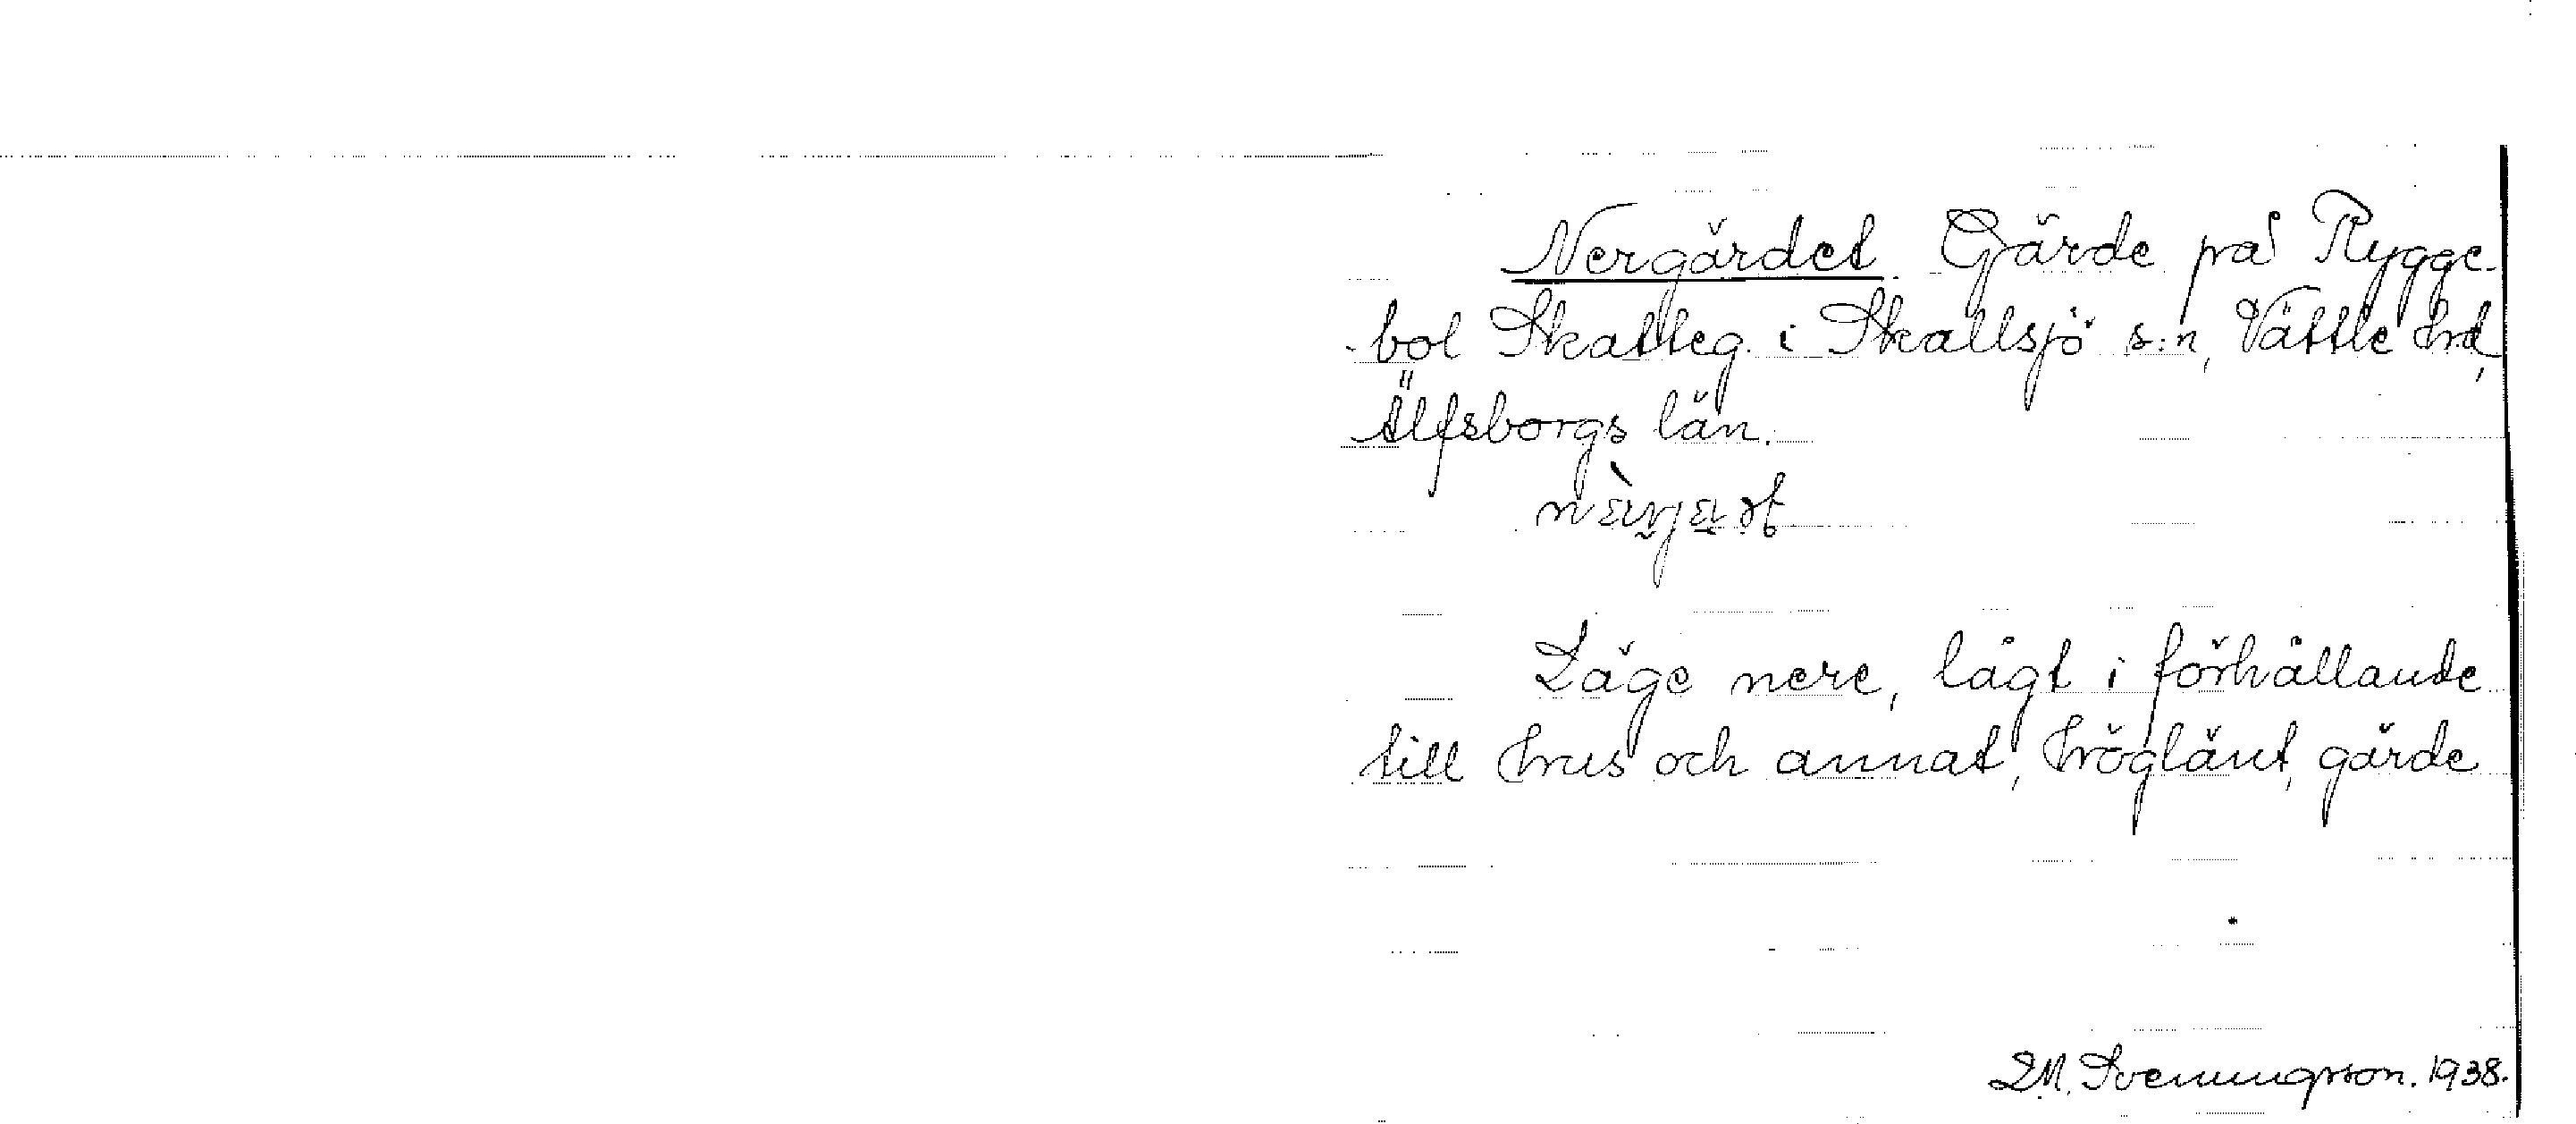 Nergärdet. Gärde på Rygge-
bol Skatteg. i Skallsjö s:n, Vättle hd,
Älfsborgs län.
Läge nere, lågt i förhållande
till hus och annat, högländt, gärde
M. Svenungsson. 1938.